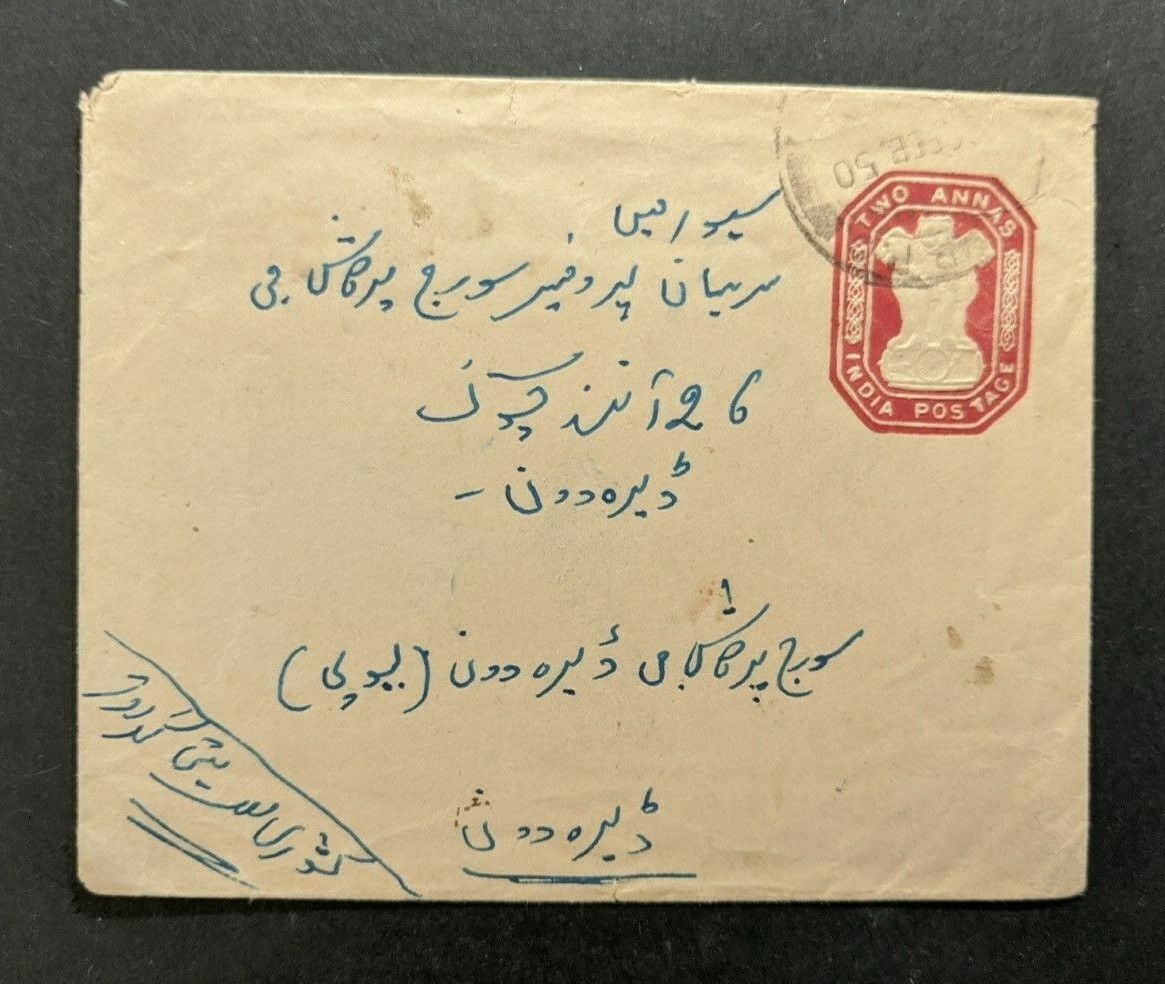 FEB 50
TWO ANNAS
INDIA POSTAGE
سیوا میں
سریمان پروفیسر سورج پرکاش جی
26 آنند چوک
ڈیرہ دون -
سورج پرکاش جی ڈیرہ دون (یوپی)
ڈیرہ دون